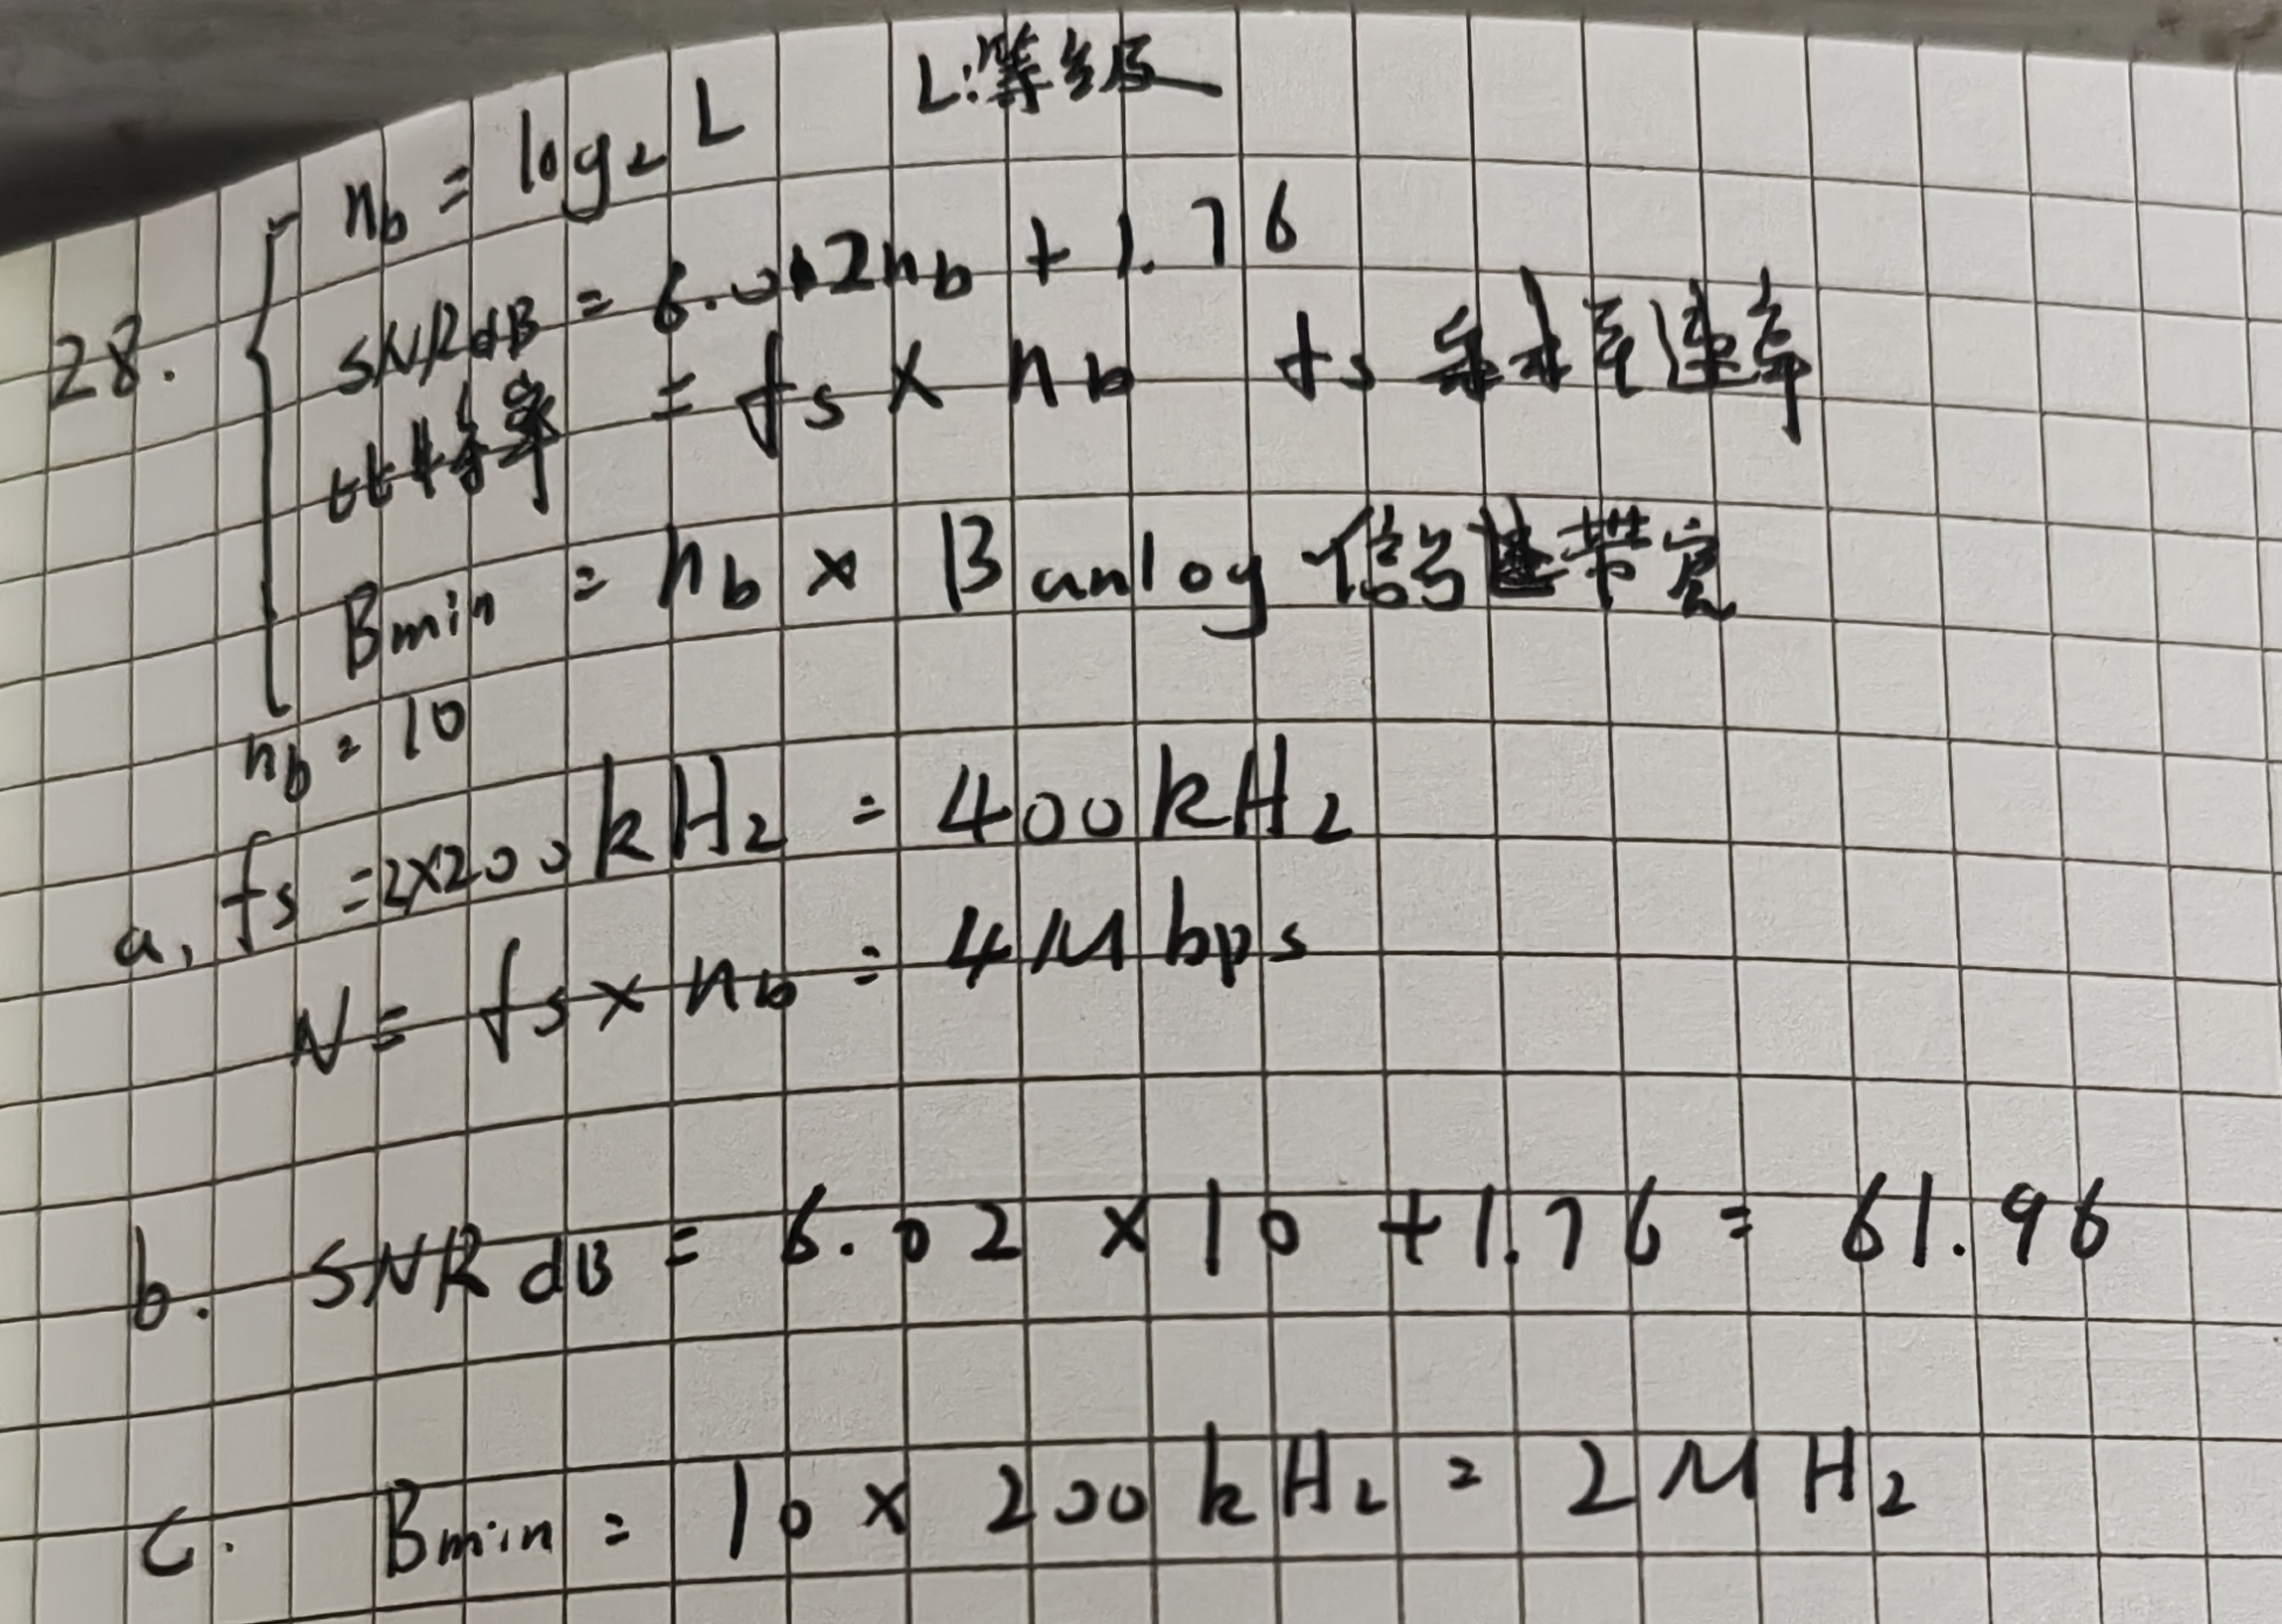 n_b = log₂ L L:等级
28. SNRdB = 6.02n_b + 1.76
比特率 = fs × n_b fs 采样速率
Bmin = n_b × B anlog 信号 带宽
n_b = 10
a, fs = 2×200kHz = 400kHz
N = fs × n_b = 4Mbps
b. SNR dB = 6.02 × 10 + 1.76 = 61.96
c. Bmin = 10 × 200 kHz = 2 MHz